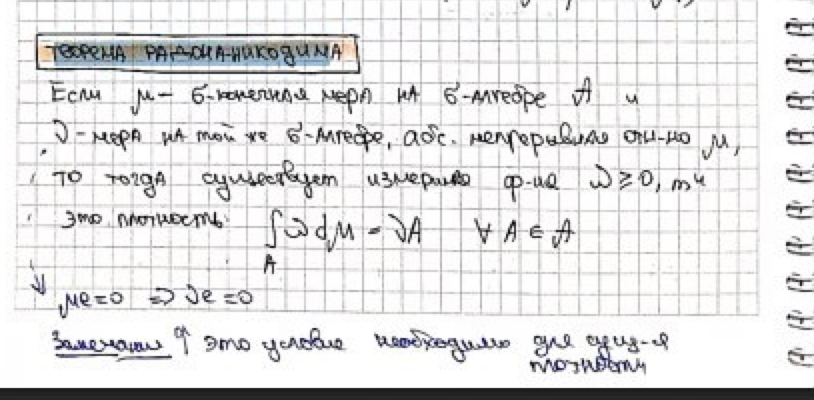 ТЕОРЕМА РАДОНА-НИКОДИМА
Если μ - σ-конечная мера на σ-алгебре 𝒜 и
ν - мера на той же σ-алгебре, абс. непрерывная отн-но μ,
то тогда существует измерима ф-ия ω ≥ 0, что
это плотность: ∫ ω dμ = νA ∀ A ∈ 𝒜
A
μe=0 ⇒ νe=0
это условие необходимо для сущ-я
плотности